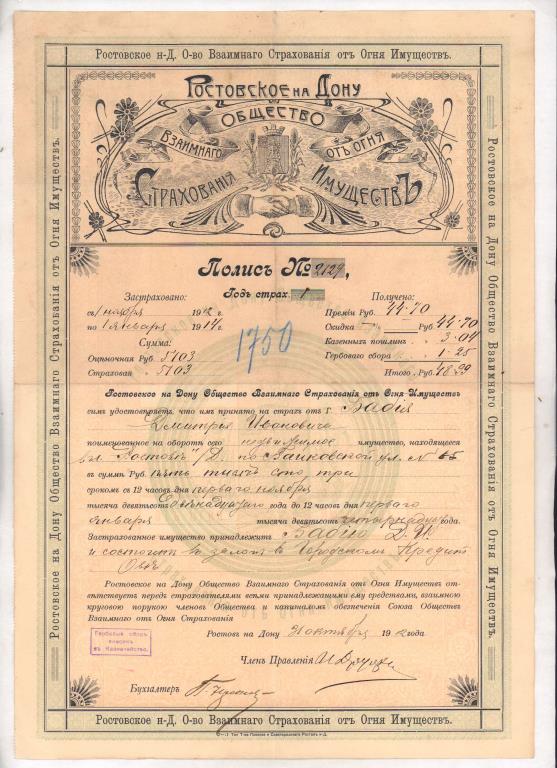 Ростовское н-Д. О-во Взаимнаго Страхованія отъ Огня Имуществъ.
Ростовское на Дону
Общество
Взаимнаго отъ огня
Страхованія Имуществъ
Полисъ № 2129,
Годъ страх. 1
Застраховано: Получено:
съ 1 ноября 19 г. Преміи Руб. 44-70
по 1 января 1914 г. Скидка % Руб. 44-70
Сумма: Казенныхъ пошлинъ 3-04
1750
Оцѣночная Руб. 5103 Гербоваго сбора 1-25
Страховая 5103 Итого, Руб. 48-99
Ростовское на Дону Общество Взаимнаго Страхованія отъ Огня Имуществъ
симъ удостовѣряетъ что имъ принято на страхъ отъ г.
Дмитрія Ивановича
поименованное на оборотѣ сего недвижимое имущество, находящееся
въ г. Ростовѣ н/Д. по ул. №
въ суммѣ Руб. пять тысячъ сто три
срокомъ съ 12 часовъ дня перваго ноября
тысяча девятьсотъ года до 12 часовъ дня перваго
января тысяча девятьсотъ четырнадцат года.
Застрахованное имущество принадлежитъ Д. И.
и состоитъ въ залогѣ въ Городскомъ Кредит
О-вѣ
Ростовское на Дону Общество Взаимнаго Страхованія отъ Огня Имуществъ от-
вѣтствуетъ передъ страхователями всѣми принадлежащими ему средствами, взаимною
круговою порукою членовъ Общества и капиталомъ обезпеченія Союза Обществъ
Взаимнаго отъ огня Страхованія
Ростовъ на Дону 31 октября 19 года
Гербовый сборъ
внесенъ
въ Казначейство.
Членъ Правленія
Бухгалтеръ
Ростовское н-Д. О-во Взаимнаго Страхованія отъ Огня Имуществъ.
Ростовское на Дону Общество Взаимнаго Страхованія отъ Огня Имуществъ.
Ростовское на Дону Общество Взаимнаго Страхованія отъ Огня Имуществъ.